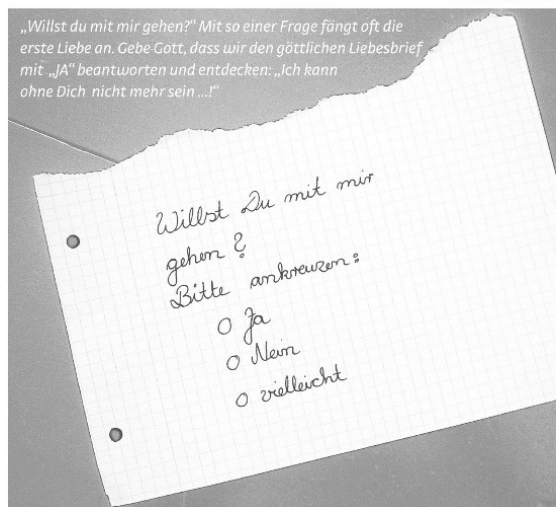 „Willst du mit mir gehen?“ Mit so einer Frage fängt oft die
erste Liebe an. Gebe Gott, dass wir den göttlichen Liebesbrief
mit „JA“ beantworten und entdecken: „Ich kann
ohne Dich nicht mehr sein ...!“
Willst Du mit mir
gehen ?
Bitte ankreuzen:
O Ja
O Nein
O vielleicht